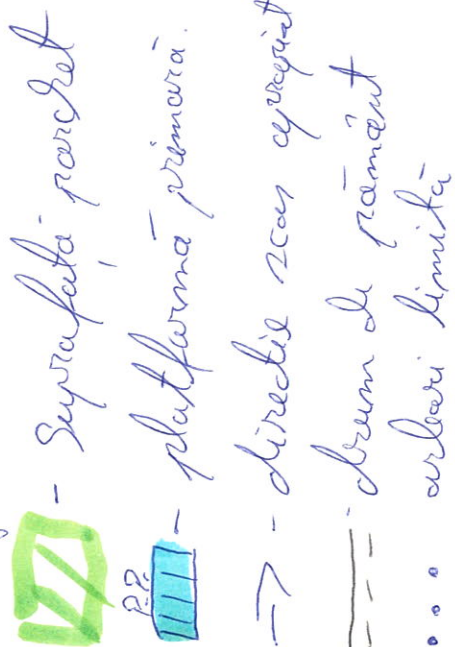 - Suprafață parchet
P.P.
- platformă primară.
- direcție scos apropiat
- drum de pământ
arbori limită